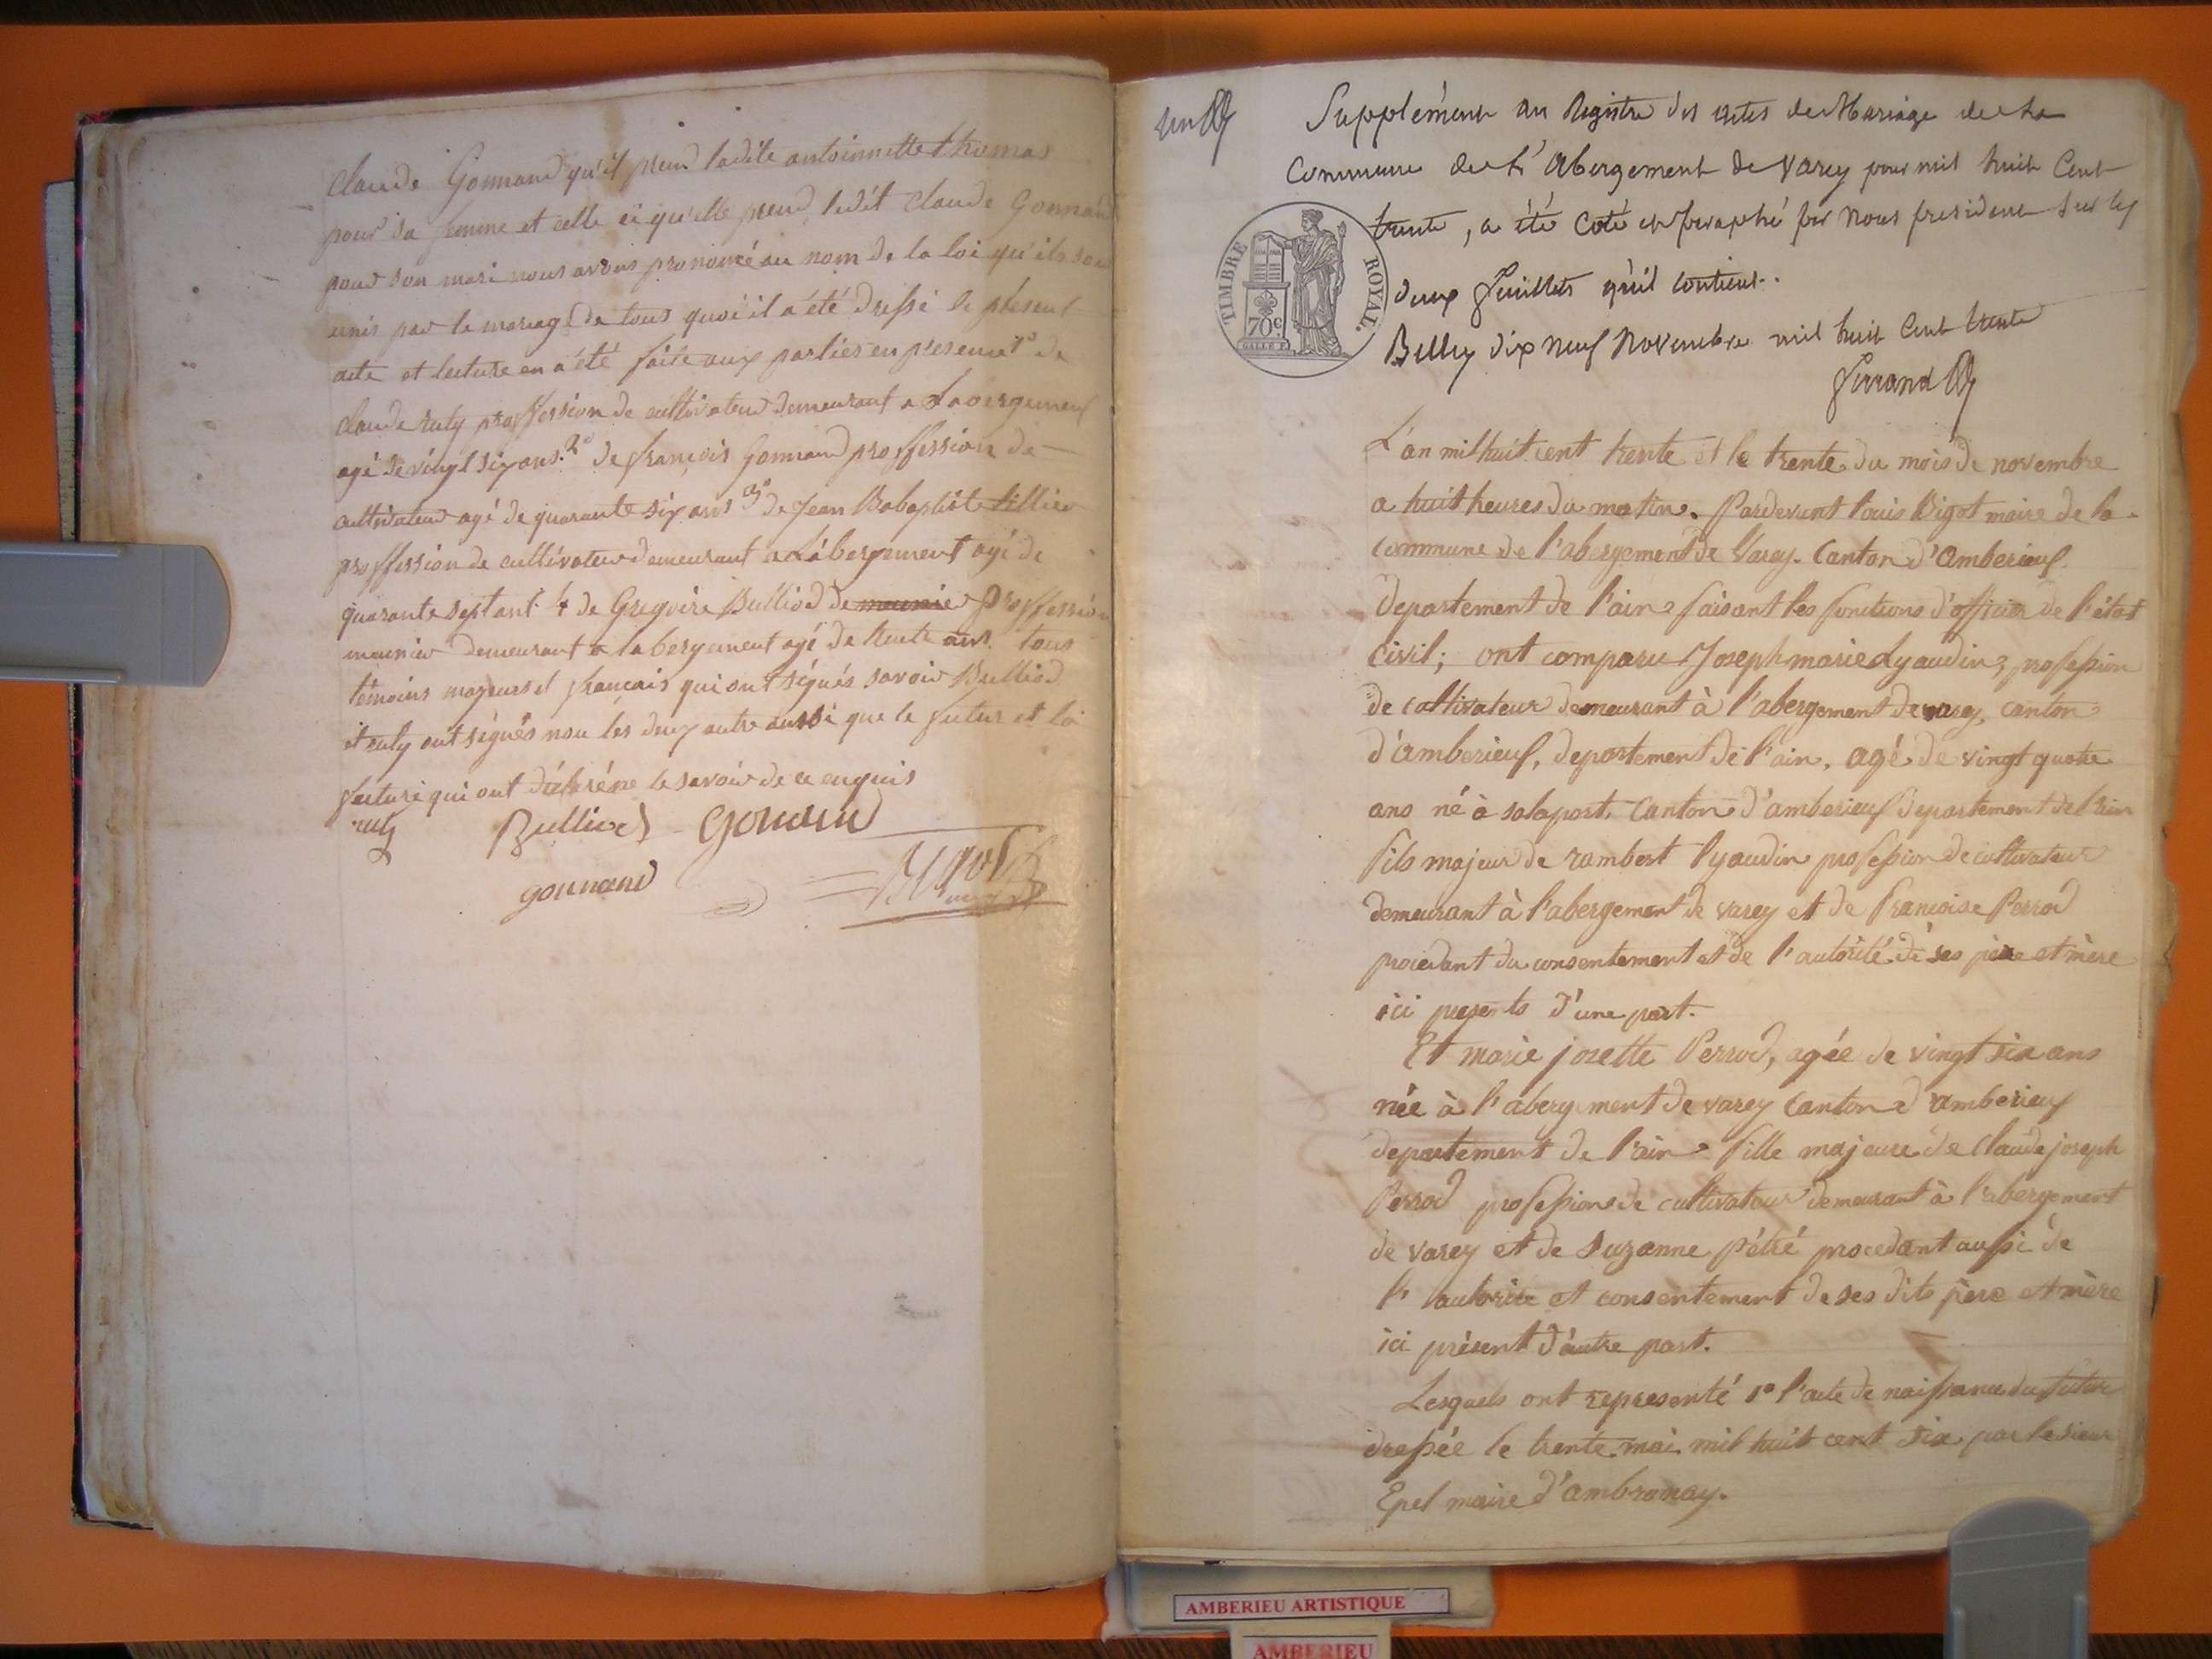 Claude Gonnand qu'il prend ladite antoinette thomas
pour sa femme et celle ci qu'elle prend ledit claude Gonnand
pour son mari nous avons prononcé au nom de la loi qu'ils sont
unis par le mariage de tous quoi il a été dressé le present
acte et lecture en a été faite aux parties en presence 1º de
claude ruty proffession de cultivateur demeurant a Labergement
agé de vingt six ans. 2º de françois Gonnand proffession de
cultivateur agé de quarante six ans 3º de Jean Babaptiste tillier
proffession de cultivateur demeurant a Labergement agé de
quarante sept ant 4 de Gregoire Bulliod de meunier proffession
meunier demeurant a labergement agé de trente ans tous
témoins majeurs et français qui ont signés savoir Bulliod
et ruty ont signés non les deux autre aussi que le futur et la
future qui ont déclaré ne le savoir de ce enquis
ruty Bulliod Gonnand
gonnand Bigot
un
Supplément au Registre des actes de Mariage de La
Commune de L'Abergement de Varey pour mil huit Cent
trente, a été coté et paraphé par nous president sur les
deux feuillets qu'il contient.
Belley dix neuf Novembre mil huit Cent trente
Ferrand
TIMBRE ROYAL.
70c.
L'an mil huit cent trente et le trente du mois de novembre
a huit heures du matin. Pardevant louis Bigot maire de la
commune de l'abergement de Varey. Canton d'Amberieuf
departement de l'ain faisant les fonctions d'officier de l'état
civil; ont comparu Joseph marie Lyaudin, profession
de cultivateur demeurant à l'abergement de varey, canton
d'amberieuf, departement de l'ain, agé de vingt quatre
ans né à salaport, Canton d'amberieuf departement de l'ain
fils majeur de rambert lyaudin profession de cultivateur
demeurant à l'abergement de varey et de françoise Perrod
procedant du consentement et de l'autorité de ses père et mère
ici presents d'une part.
Et marie josette Perrod, agée de vingt six ans
née à l'abergement de varey Canton d'amberieuf
departement de l'ain fille majeure de Claude joseph
Perrod profession de cultivateur demeurant à l'abergement
de varey et de Suzanne pétré procedant aussi de
l'autorité et consentement de ses dits père et mère
ici présent d'autre part.
Lesquels ont representé 1º l'acte de naissance du futur
dressée le trente mai mil huit cent six par le sieur
Epel maire d'ambronay.
AMBERIEU ARTISTIQUE
AMBERIEU